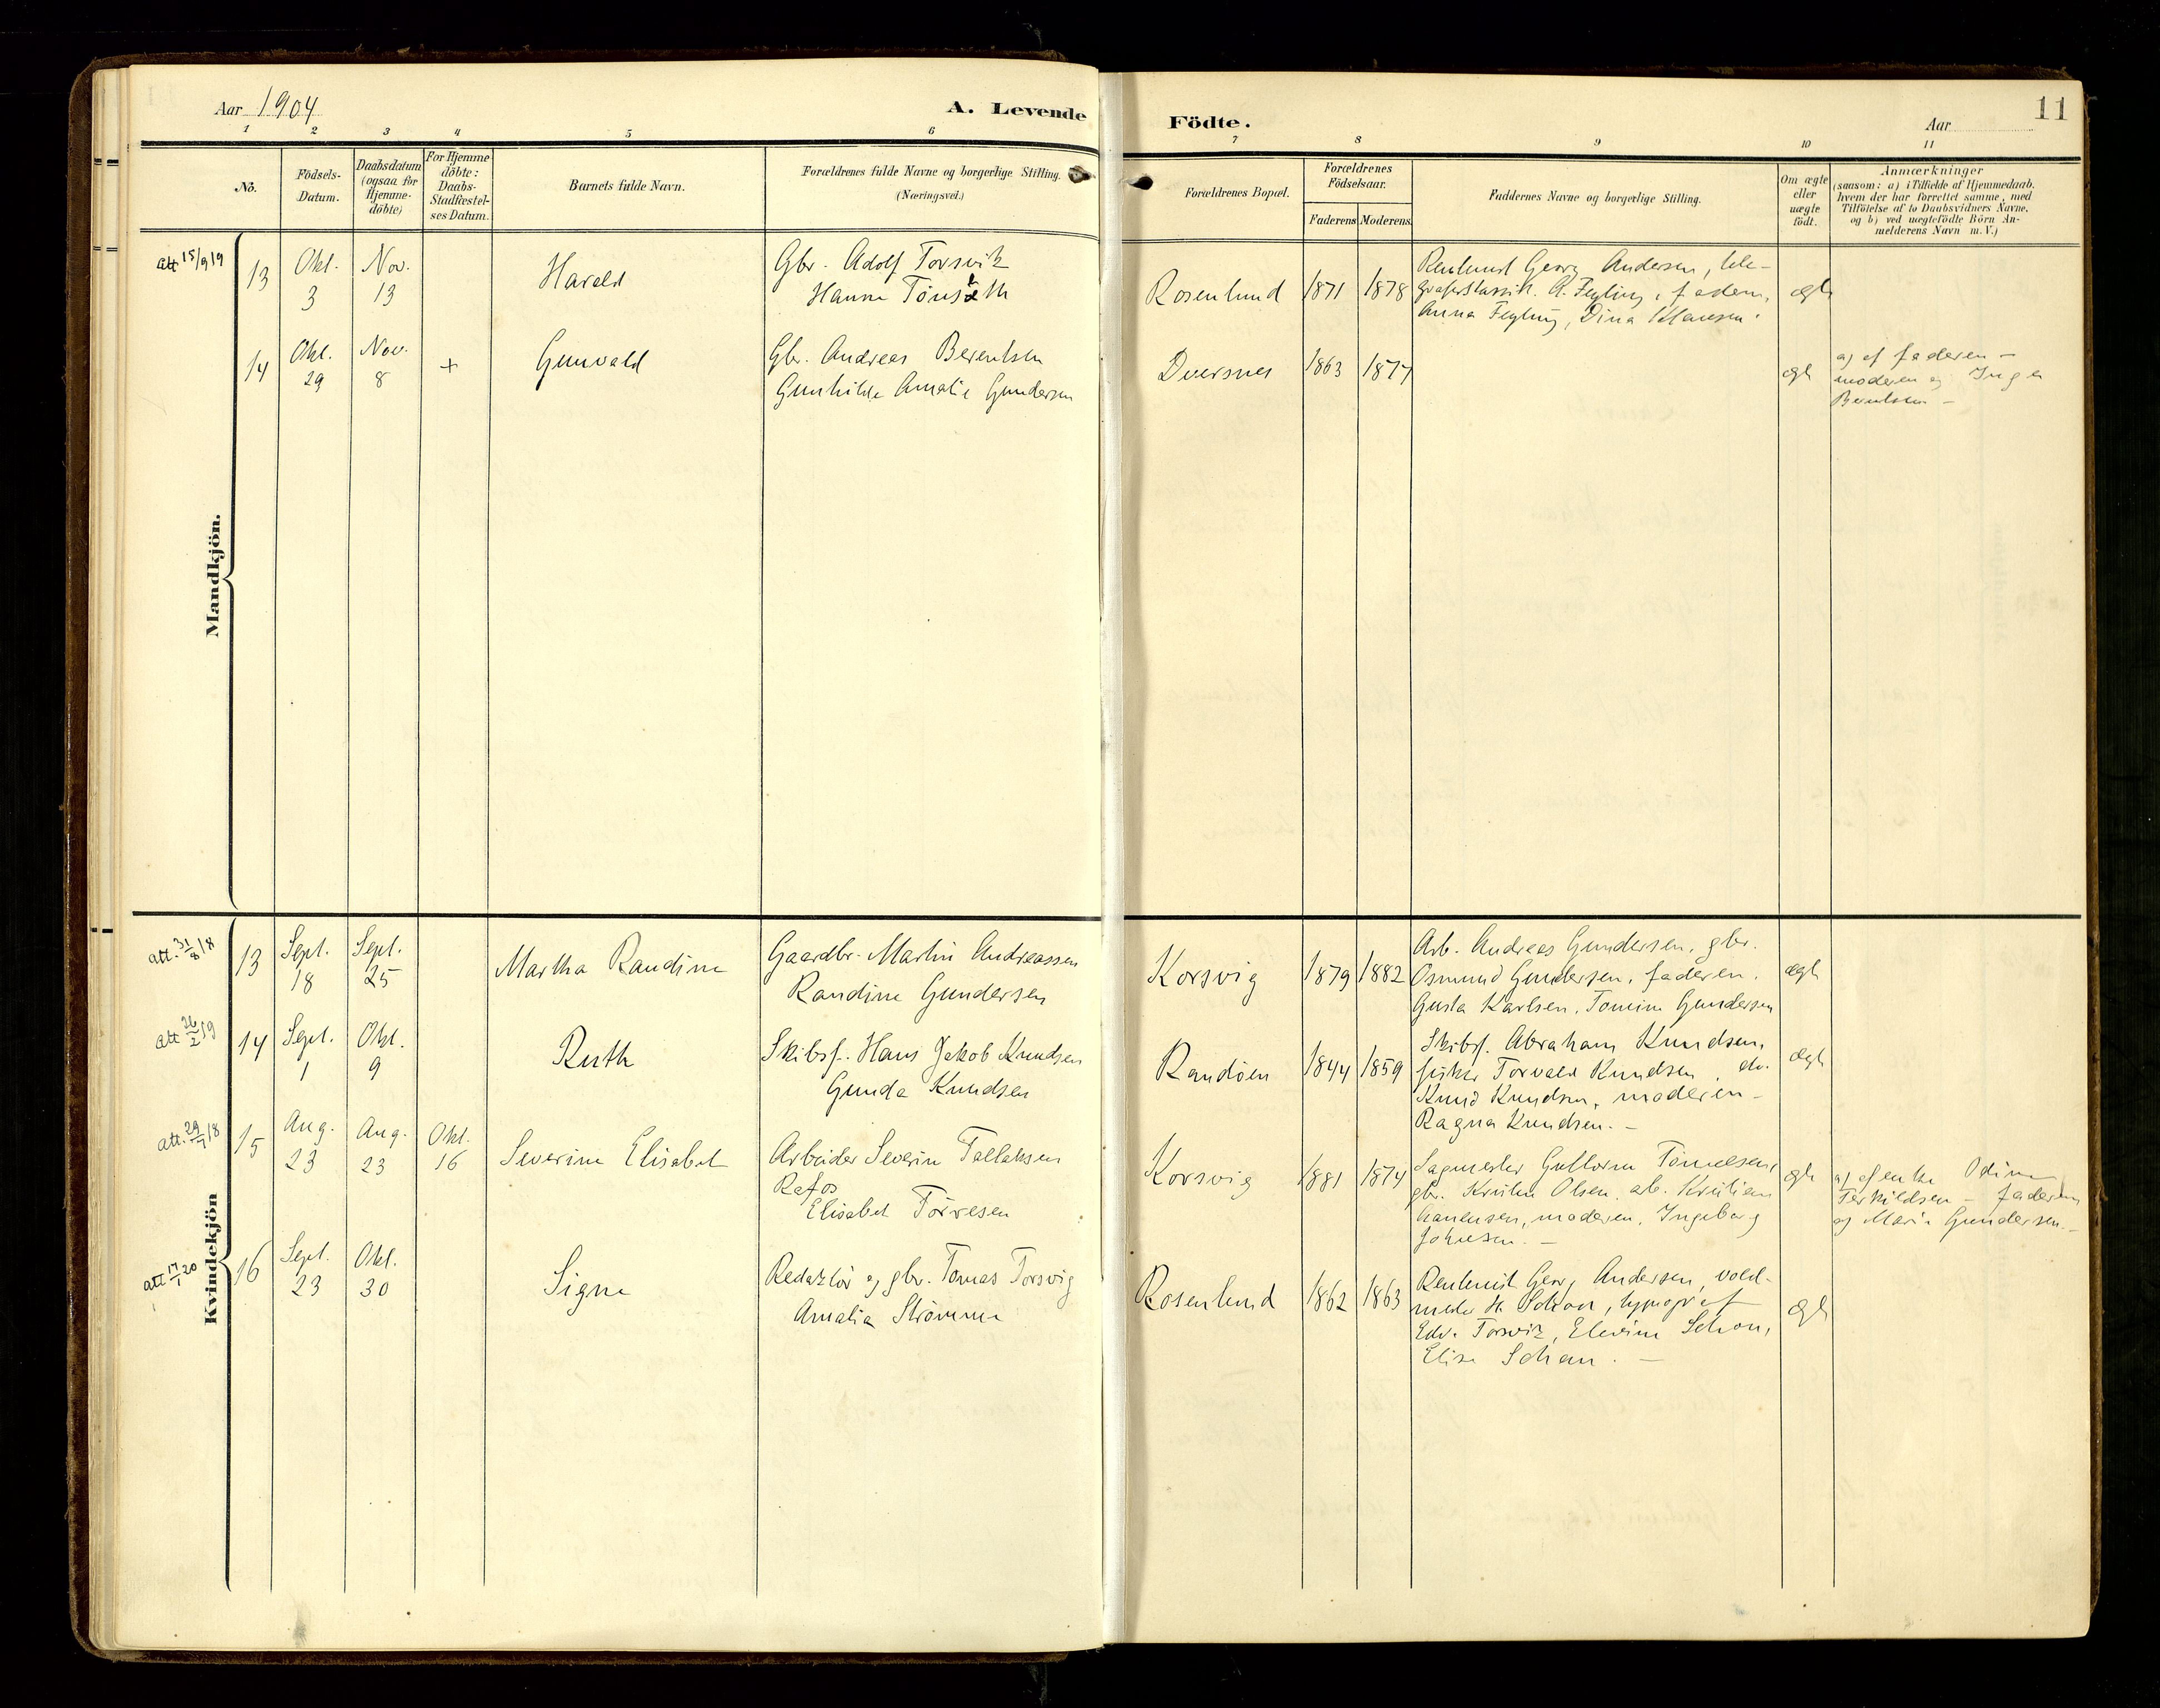 Aar 1904
A. Levende
Födte.
Aar
11
1 2 3 4 5 6 7 8 9 10 11
No.
Födsels-
Datum.
Daabsdatum
(ogsaa for
Hjemme-
döbte)
For Hjemme
döbte:
Daabs-
Stadfæstel-
ses Datum.
Barnets fulde Navn.
Forældrenes fulde Navne og borgerlige Stilling.
(Næringsvei.)
Forældrenes Bopæl.
Forældrenes
Födselsaar.
Faderens Moderens
Faddernes Navne og borgerlige Stilling.
Om ægte
eller
uægte
födt.
Anmærkninger
(saasom: a) i Tilfælde af Hjemmedaab,
hvem der har forrettet samme, med
Tilföielse af to Daabsvidners Navne,
og b) ved uægtefödte Börn An-
melderens Navn m. V.)
Mandkjön.
att 15/9 19
13
Okt.
3
Nov.
13
Harald
Gbr. Adolf Torsvik
Hanna
Rosenlund
1871
1878
Georg Andersen, tele-
A. Feyling, faderen,
Anna Feyling, Dina Klausen.
ægte
14
Okt.
29
Nov.
8
+
Gunvald
Gbr. Andreas Berentsen
Gunhilde Amalie Gundersen
Dversnes
1863
1877
ægte
a) af faderen –
moderen og Inga
Berentsen –
Kvindekjön
att. 31/8 18
13
Sept.
18
Sept.
25
Martha Randine
Gaardbr. Martin Andreassen
Randine Gundersen
Korsvig
1879
1882
Arb. Andreas Gundersen, gbr.
Osmund Gundersen, faderen.
Gusta Karlsen, Tomine Gundersen
ægte
att 26/2 19
14
Sept.
1
Okt.
9
Ruth
Skibsf. Hans Jakob Knudsen
Gunda Knudsen
Randöen
1844
1859
Skibsf. Abraham Knudsen,
fisker Torvald Knudsen, do.
Knud Knudsen, moderen –
Ragna Knudsen. –
ægte
att. 29/7 18
15
Aug.
23
Aug.
23
Okt.
16
Severine Elisabet
Arbeider Severin Tallaksen
Refos
Elisabet Törresen
Korsvig
1881
1874
Sagmester Guttorm
gbr. Olsen, arb. Kristian
moderen, Ingeborg
Johnsen. –
ægte
a) af enke Odine
Terkildsen – faderen
og Marie Gundersen. –
att 17/1 20
16
Sept.
23
Okt.
30
Signe
Redaktör og gbr. Tomas Torsvig
Amalia Strömme
Rosenlund
1862
1863
Georg Andersen, vold-
mester H. Schau, typograf
Edv. Torsvik, Schau,
Elise Schau. –
ægte